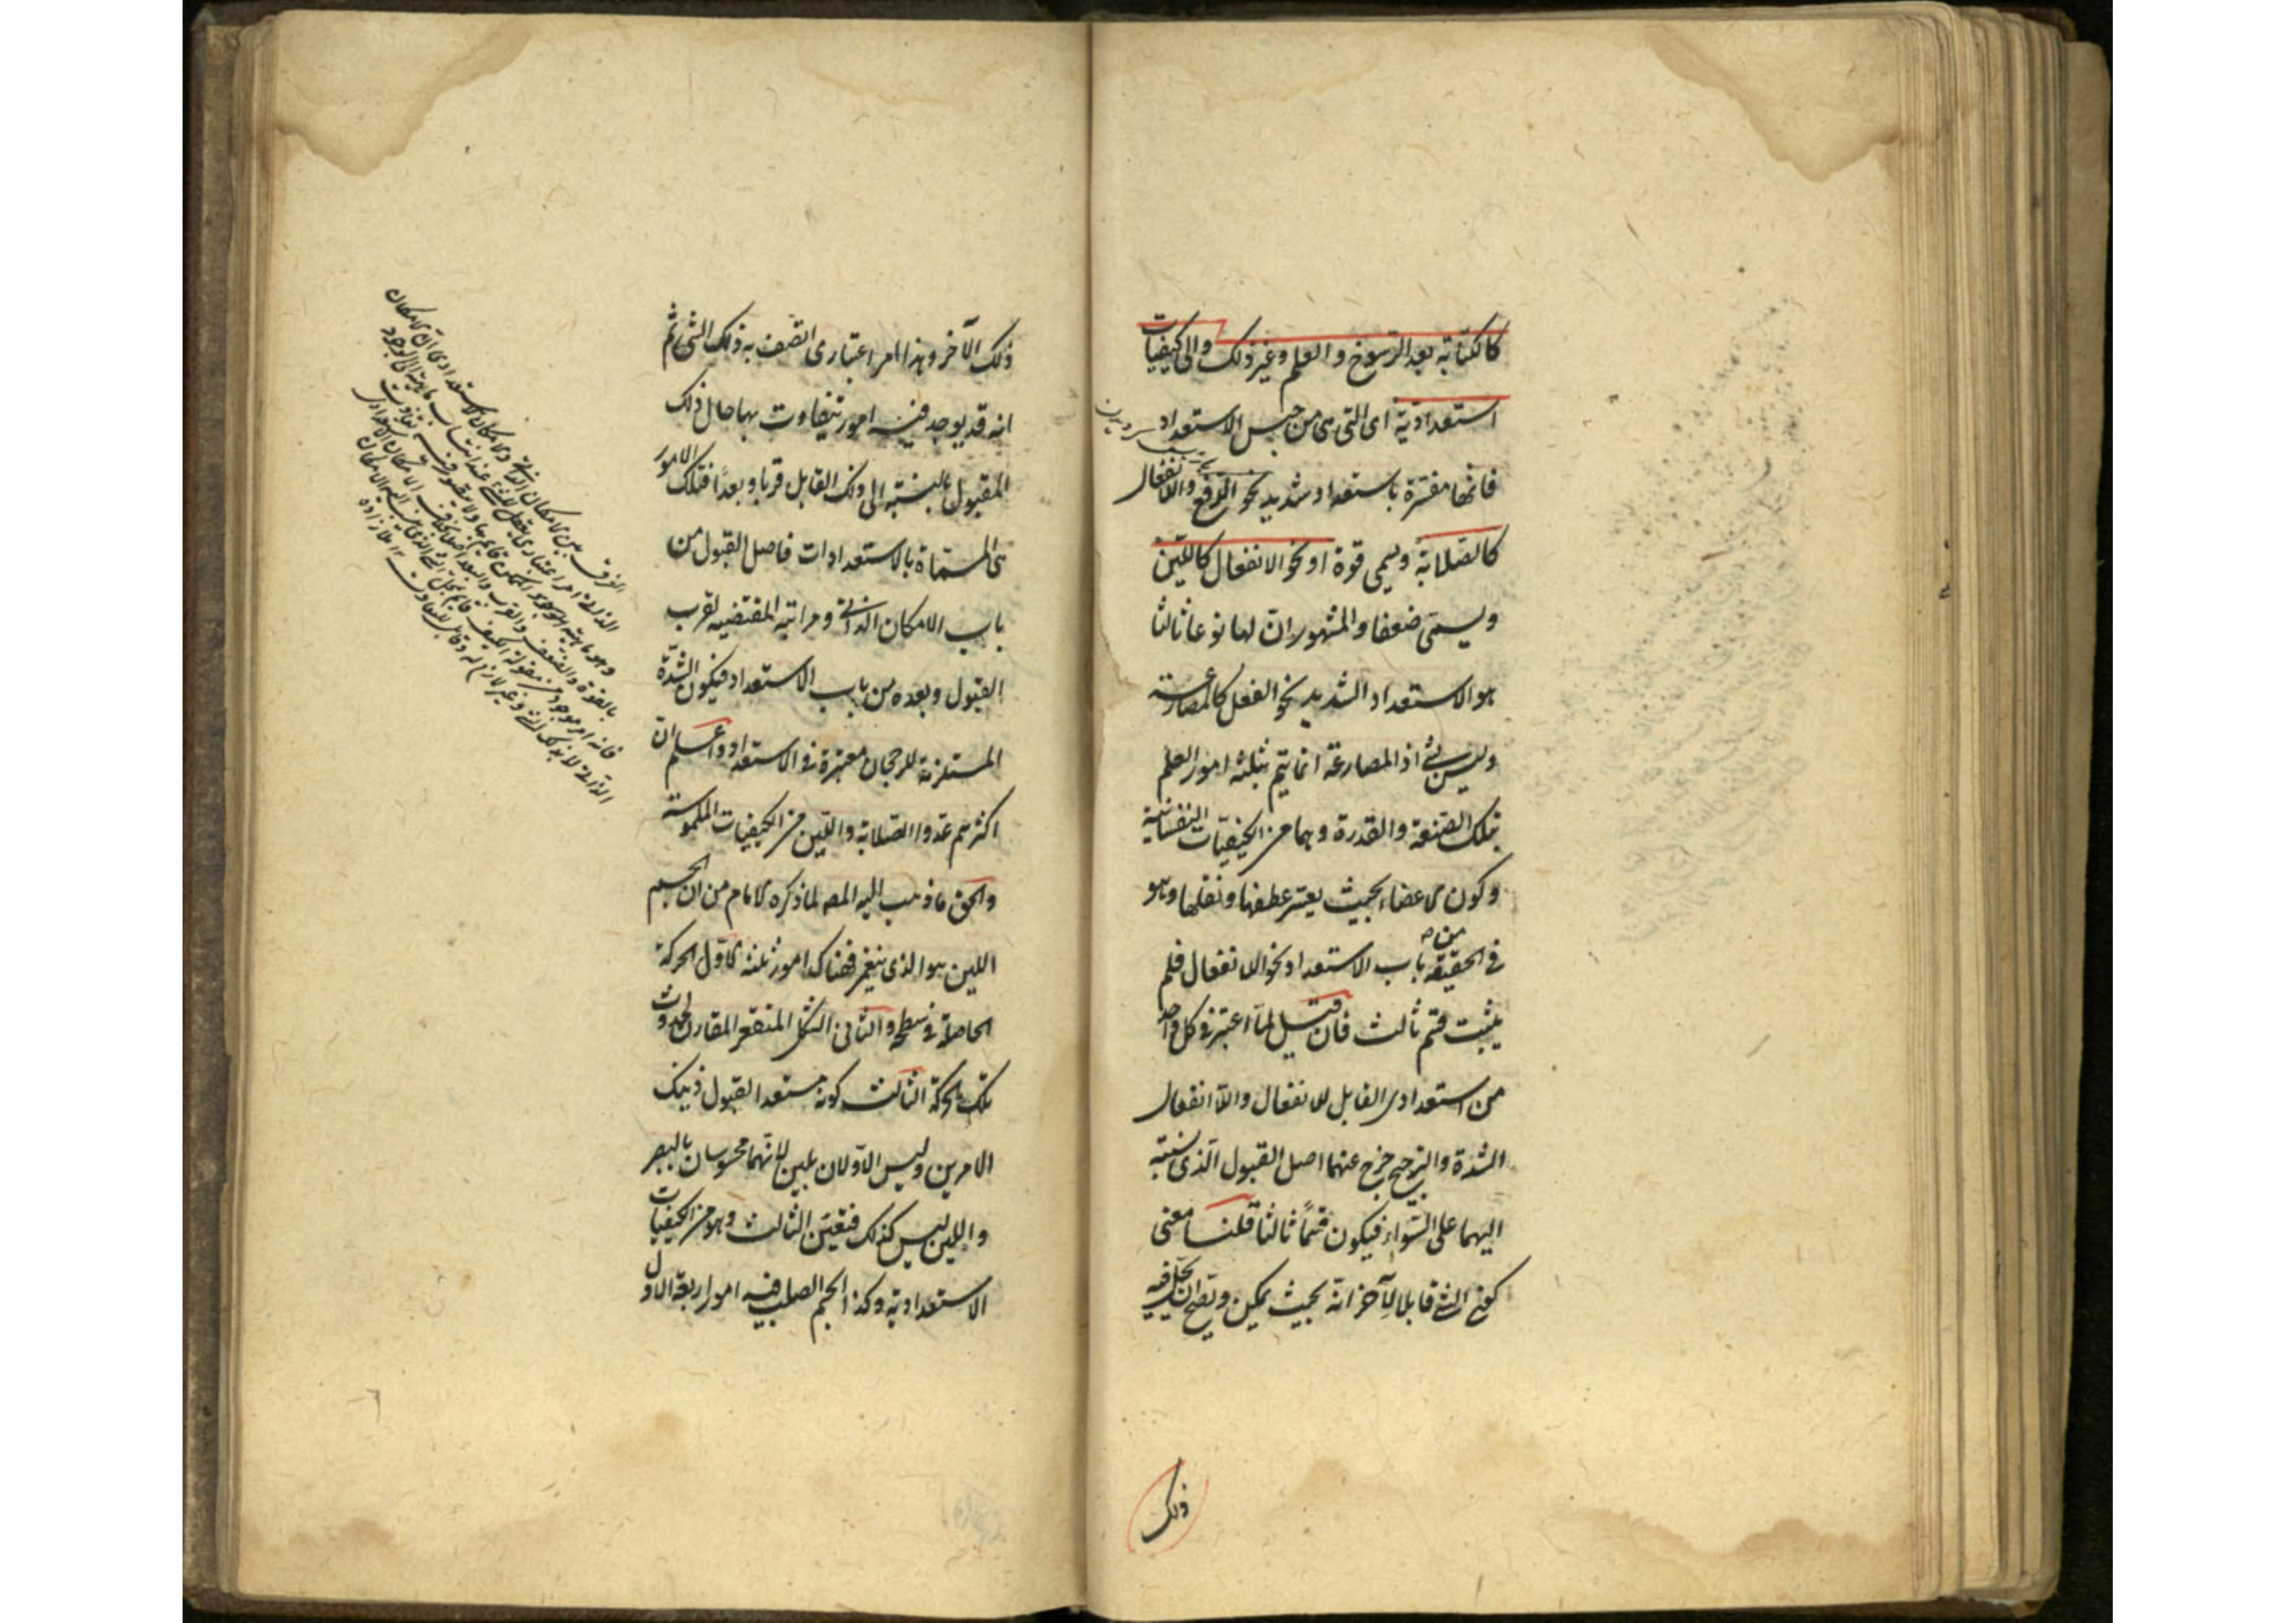 كالكتابة بعد الرسوخ والعلم وغير ذلك والى كيفيات
استعدادية اى التى هى من جنس الاستعداد
فانها مفسرة باستعداد شديد نحو الدفع واللاانفعال
كالصلابة ويسمى قوة او نحو الانفعال كاللين
ويسمى ضعفا والمشهور ان لها نوعا ثالثا
هو الاستعداد الشديد نحو الفعل كالمصارعة
وليس بشئ اذ المصارعة انما يتم بثلثة امور العلم
بتلك الصنعة والقدرة وهما من الكيفيات النفسانية
وكون الاعضاء بحيث يعسر عطفها ونقلها وهو
فى الحقيقة من باب الاستعداد نحو اللاانفعال فلم
يثبت قسم ثالث فان قيل لما اعتبر فى كل واحد
من استعدادى القابل للانفعال واللاانفعال
الشدة والترجيح خرج عنهما اصل القبول الذى نسبته
اليهما على السواء فيكون قسما ثالثا قلنا معنى
كون الشئ قابلا لآخر انه بحيث يمكن ويصح ان يحل فيه
ذلك
ذلك الآخر وهذا امر اعتبارى اتصف به ذلك الشئ ثم
انه قد يوجد فيه امور يتفاوت بها حال ذلك
المقبول بالنسبة الى ذلك القابل قربا وبعدا فتلك الامور
هى المسماة بالاستعدادات فاصل القبول من
باب الامكان الذاتى ومراتبه المقتضية لقرب
القبول وبعده من باب الاستعداد فيكون الشدة
المستلزمة للرجحان معتبرة فى الاستعداد واعلم ان
اكثرهم عدوا الصلابة واللين من الكيفيات الملموسة
والحق ما ذهب اليه المصه لما ذكره الامام من ان الجسم
اللين هو الذى ينغمز فهناك امور ثلثة الاول الحركة
الحاصلة فى سطحه والثانى الشكل المنقعر المقارن لحدوث
تلك الحركة الثالث كونه مستعدا لقبول ذينك
الامرين وليس الاولان بلين لانهما محسوسان بالبصر
واللين ليس كذلك فتعين الثالث وهو من الكيفيات
الاستعدادية وكذا الجسم الصلب فيه امور اربعة الاول